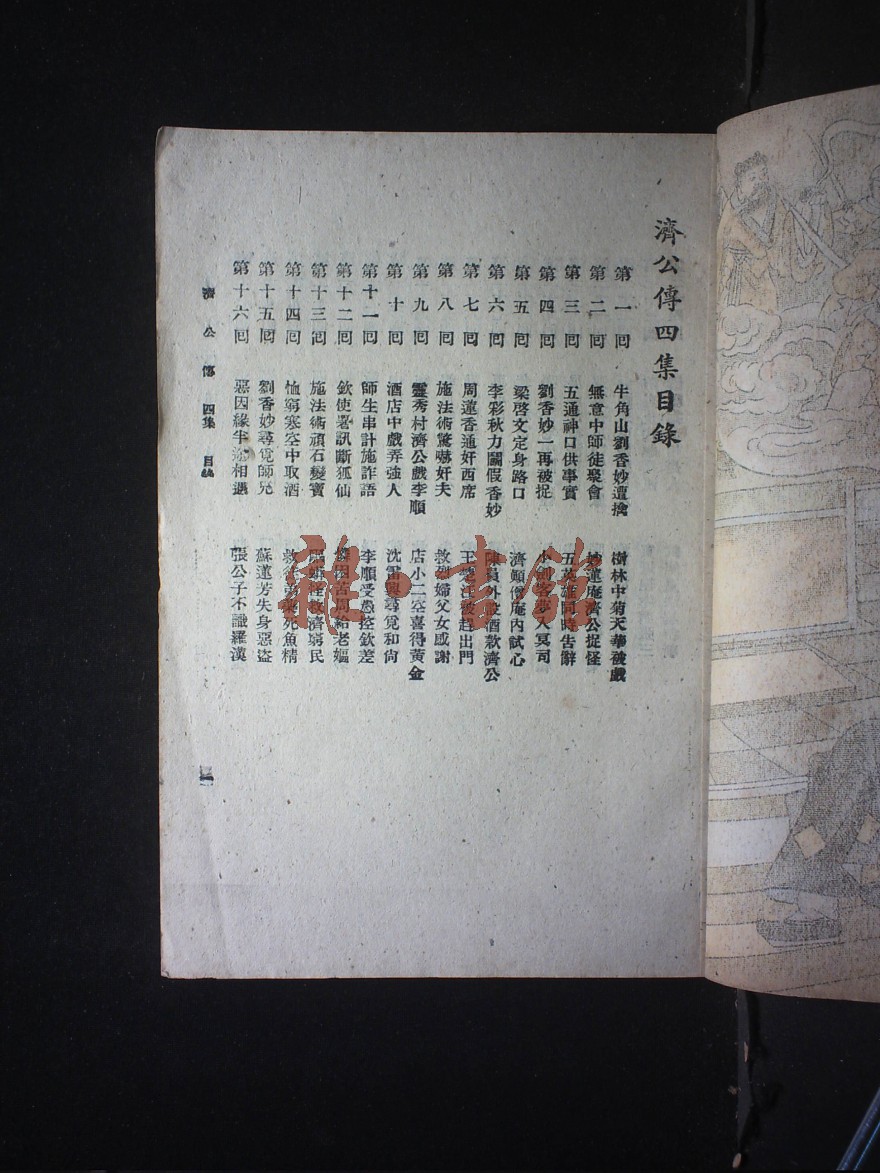 濟公傳四集目錄
第一回 牛角山劉香妙遭擒 樹林中菊天華被戲
第二回 無意中師徒聚會 妙蓮庵濟公捉怪
第三回 五通神口供事實 五英雄同時告辭
第四回 劉香妙一再被捉 小劍客夢入冥司
第五回 梁啓文定身路口 濟顛僧庵內試心
第六回 李彩秋力鬭假香妙 陳員外設酒欵濟公
第七回 周蓮香通奸西席 王楚江被趕出門
第八回 施法術驚嚇奸夫 救烈婦父女感謝
第九回 靈秀村濟公戲李順 店小二空喜得黃金
第十回 酒店中戲弄強人 沈雷興尋覓和尚
第十一回 師生串計施詐語 李順受愚控欽差
第十二回 欽使署訊斷狐仙 困苦周給老嫗
第十三回 施法術頑石變寶 怪救濟窮民
第十四回 恤窮寒空中取酒 救徒弟 死魚精
第十五回 劉香妙尋覓師兄 蘇蓮芳失身惡盜
第十六回 惡因緣半途相遇 張公子不識羅漢
濟公傳 四集 目錄
一
雜·古館